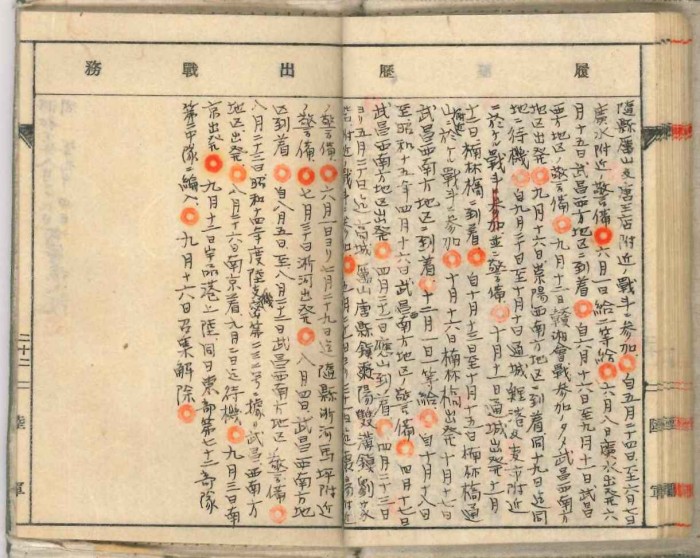 履歴
出戦務
隨縣厲山及唐王店附近ノ戦斗ニ参加 自五月二十四日至六月七日
廣水附近ノ警備 六月一日給二等給 六月八日廣水出発 六
月十五日武昌西南方地区ニ到着 自六月十六日至九月十一日武昌
西南方地区ノ警備 九月十二日贛湘會戦参加ノタメ武昌西南方
地区出発 九月十六日崇陽西南方地区ニ到着同十九日迄同
地ニ待機 自九月二十日至十月十日通城
ニ於ケル戦斗ニ参加並ニ警備 十月十一日通城出発 十一月
十二日楠林橋ニ到着 自十月十三日至十月十五日楠林橋通
山ニ於ケル戦斗ニ参加 十月十六日楠林橋出発 十月十八日
武昌西南方地区ニ到着 十二月一日一等給 自十月十八日
至昭和十五年四月十六日武昌西南方地区ノ警備 四月十七日
武昌西南方地区出発 四月二十一日應山到着 四月二十三日
ヨリ五月二十日迄
附近ノ戦斗ニ参加
ノ警備 六月一日ヨリ七月二十九日迄隨縣淅河馬坪附近
ノ警備 七月三十日淅河出発 八月四日武昌西南方地
区到着 自八月五日至八月二十二日武昌西南方地区ノ警備
八月二十三日昭和十四年度陸支機密第二三二号ニ據リ武昌西南方
地区出発 八月二十六日南京着九月二日迄待機 九月三日南
京出発 九月十三日宇品港上陸同日東部第七十二部隊
第二中隊ニ編入 九月十六日召集解除
二十二
陸軍
陸
軍